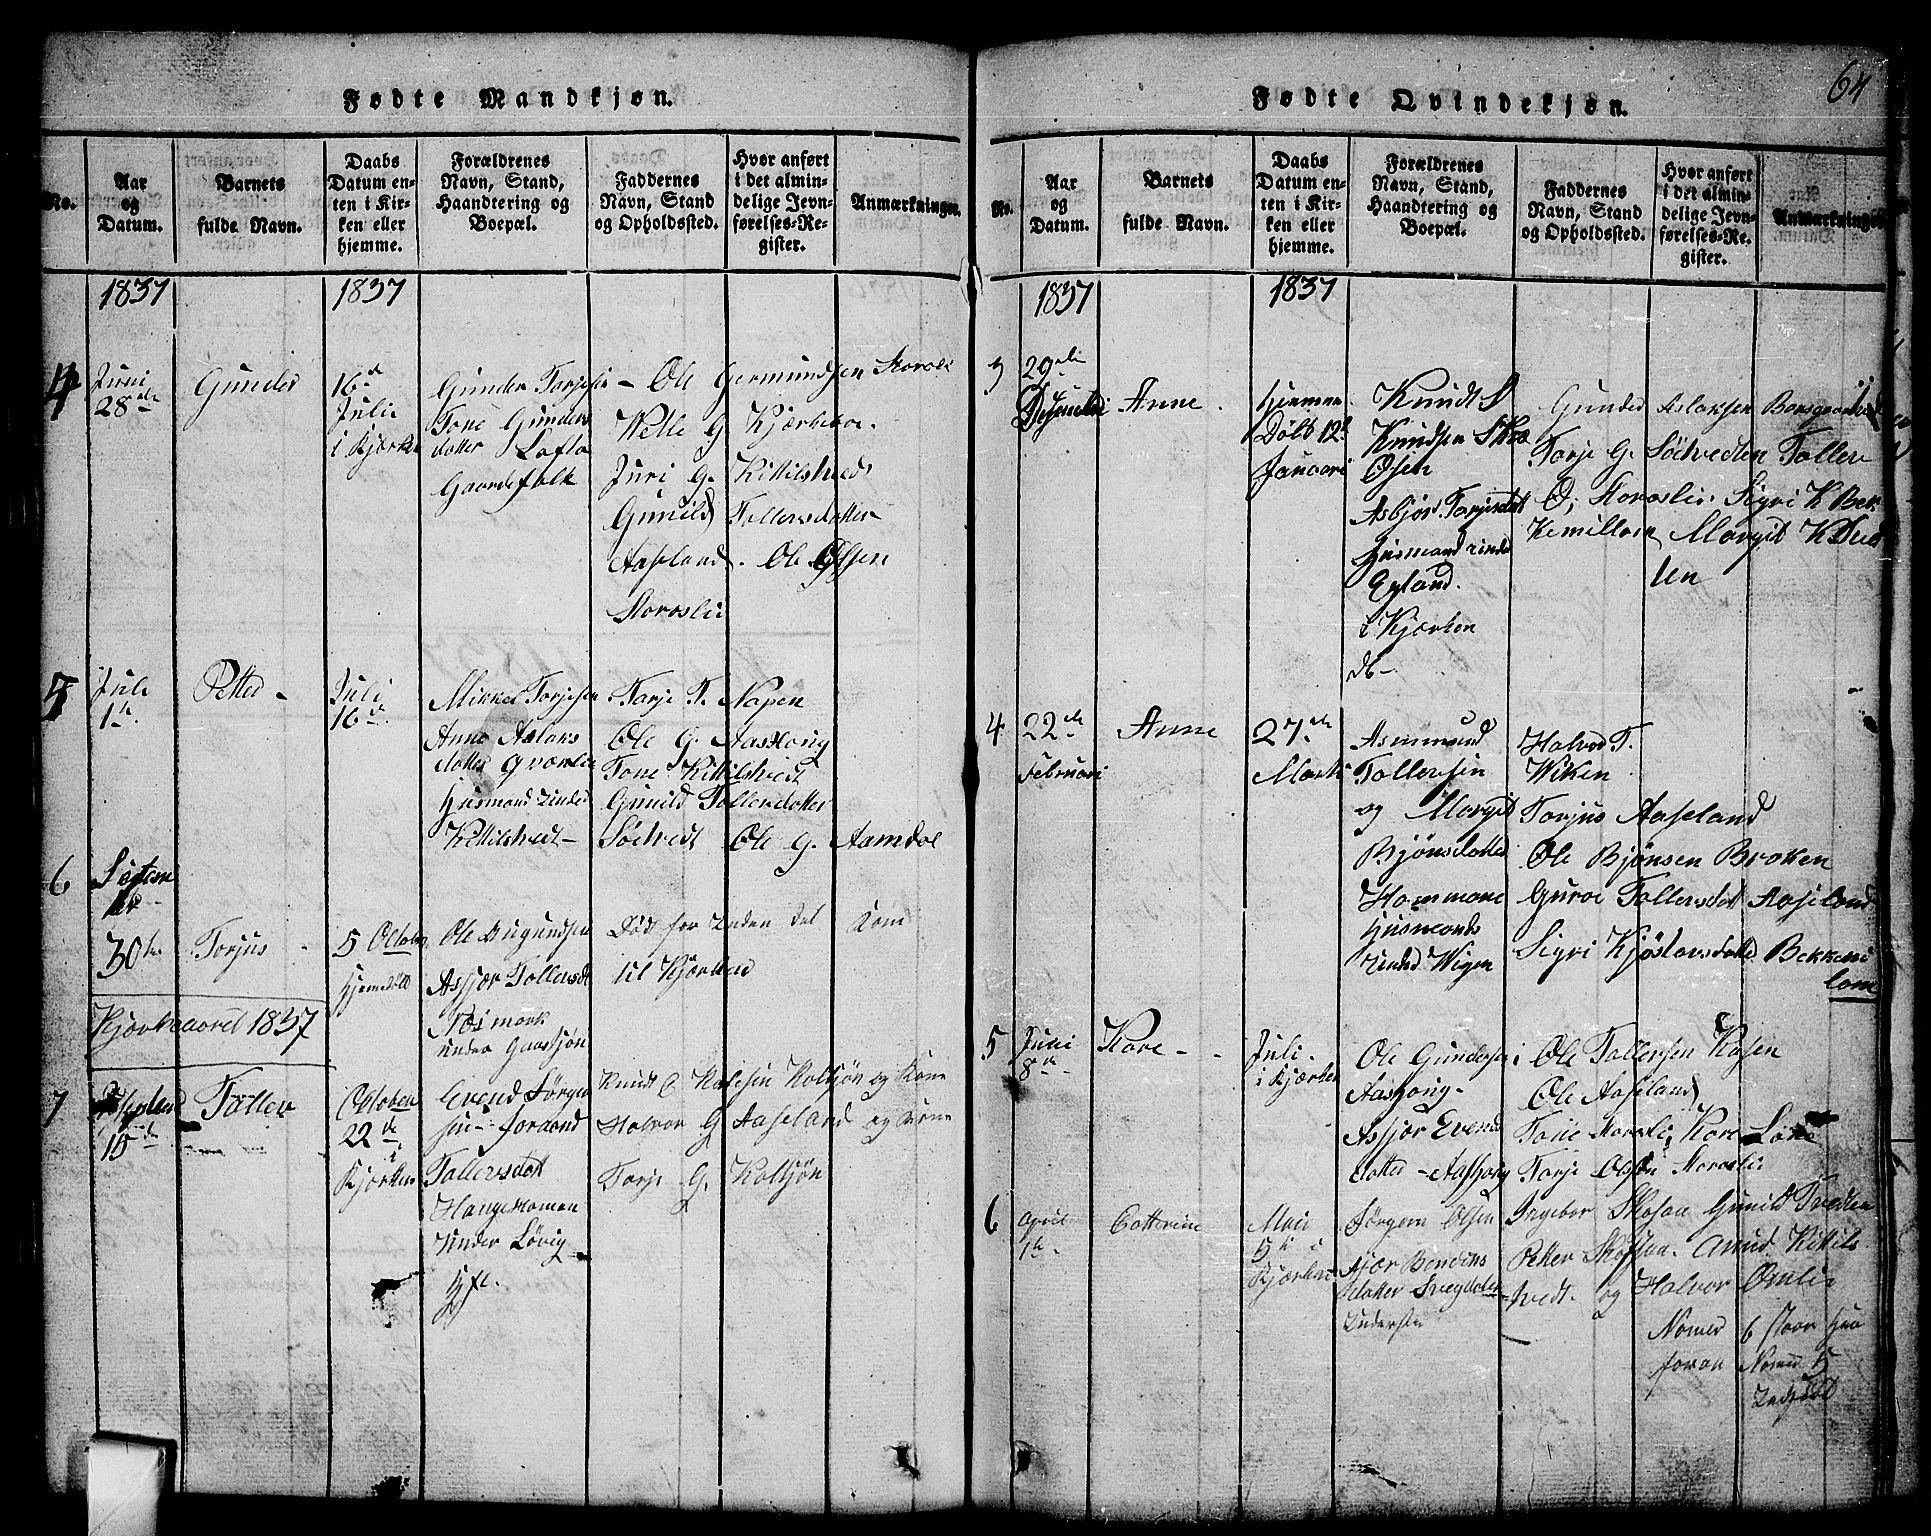 Fødte Mandkjøn.
No.
Aar og Datum.
Barnets fulde Navn.
Daabs Datum enten i Kirken eller hjemme.
Forældrenes Navn, Stand, Haandtering og Boepæl.
Faddernes Navn, Stand og Opholdssted.
Hvor anført i det almindelige Jevnførelses-Register.
Anmærkninger.
1837
1837
4
Juni
28de
Gunder
16d
Juli
i Kjørken
Gunder Torjesen
Tone Gunders
dotter Lofto
Gaardefolk
Ole Germundsen Moroli
Welle G Kjærheboe.
Juri G. Kittilsveds
Gunild Tollersdotter
Aaseland. Ole Olsen
Moroslii
5
Juli
1h.
Petter -
Juli
16d.
Mikkel Torjesen
Anne Aslaks
dotter Gværlie
Husmand Under
Kittilsvedt -
Tarje T. Napen
Ole G. Aashong
Tone Kittilshvedt
Gunild Tollersdotter
Södvedt Ole G. Aamdal
6
Septem
br
30h.
Torjus
5 Octobr
hjemedöbt
Ole Augundsen
Asbjør Tollersdt
Næsmark
under Gaassjön
Död for Inden det kom
til Kjørken
Kjørkeaaret 1837
7
15de
Töller
October
22de
i
Kjørken
Evend Jörgen
sen Joraand
Tollersdot
Hangehomen
Under Lövig
Hf.
Knudt O Kolsjön og Kone
Halvor G Aaseland og Kone
Tarje G. Kolsjön
Fødte Qvindekjøn.
64
No.
Aar og Datum.
Barnets fulde Navn.
Daabs Datum enten i Kirken eller hjemme.
Forældrenes Navn, Stand, Haandtering og Boepæl.
Faddernes Navn, Stand og Opholdssted.
Hvor anført i det almindelige Jevnførelses-Register.
Anmærkninger
1837
1837
3
29de
Anne.
hjemme
Döbt 12t
Januari
Knudt
Knudsen
Osen
Asbjør Torjesdt
Husmand under
Eyland.
i Kjørken
db -
Gunder Aslaksen
Tarje G. Södtvedten Toller
O. Moroslii Sigri K Bek
Kemillom Morgit K Tved
ten
4
22de
Februari
Anne
27de
Marti
Asmmund
Tollersen
og Morgit
Bjönsdotter
Hommane
Husmands
Under Wigen
Halvor T.
Wiken
Torjus Aaseland
Ole Bjönsen Broken
Guroe Tollersdt Aaseland
Sigri Kjöstavsdotter Bekkemi
lom
5
Juni
8de
Kare - -
Juli.
i Kjørken
Ole Gundersen
Aashong -
Asbjør Evends
dotter - Aashong
Ole Tollersen Kasen
Ole Aaseland
Tone Moroslii Kare
Torje Olsen Moroslii
6
April
1h
Catterine
Maii
5h i
Kjørken
Jörgen Olsen
Asjær Bendiks
dotter Svegdalen
Understen
Ingebor Skofaa Gunild Tvedten
Petter Skofaa. Amund Kittils
tvedt. og Halvor Omlie
Nomer 6 staar her
foran Nomer 5